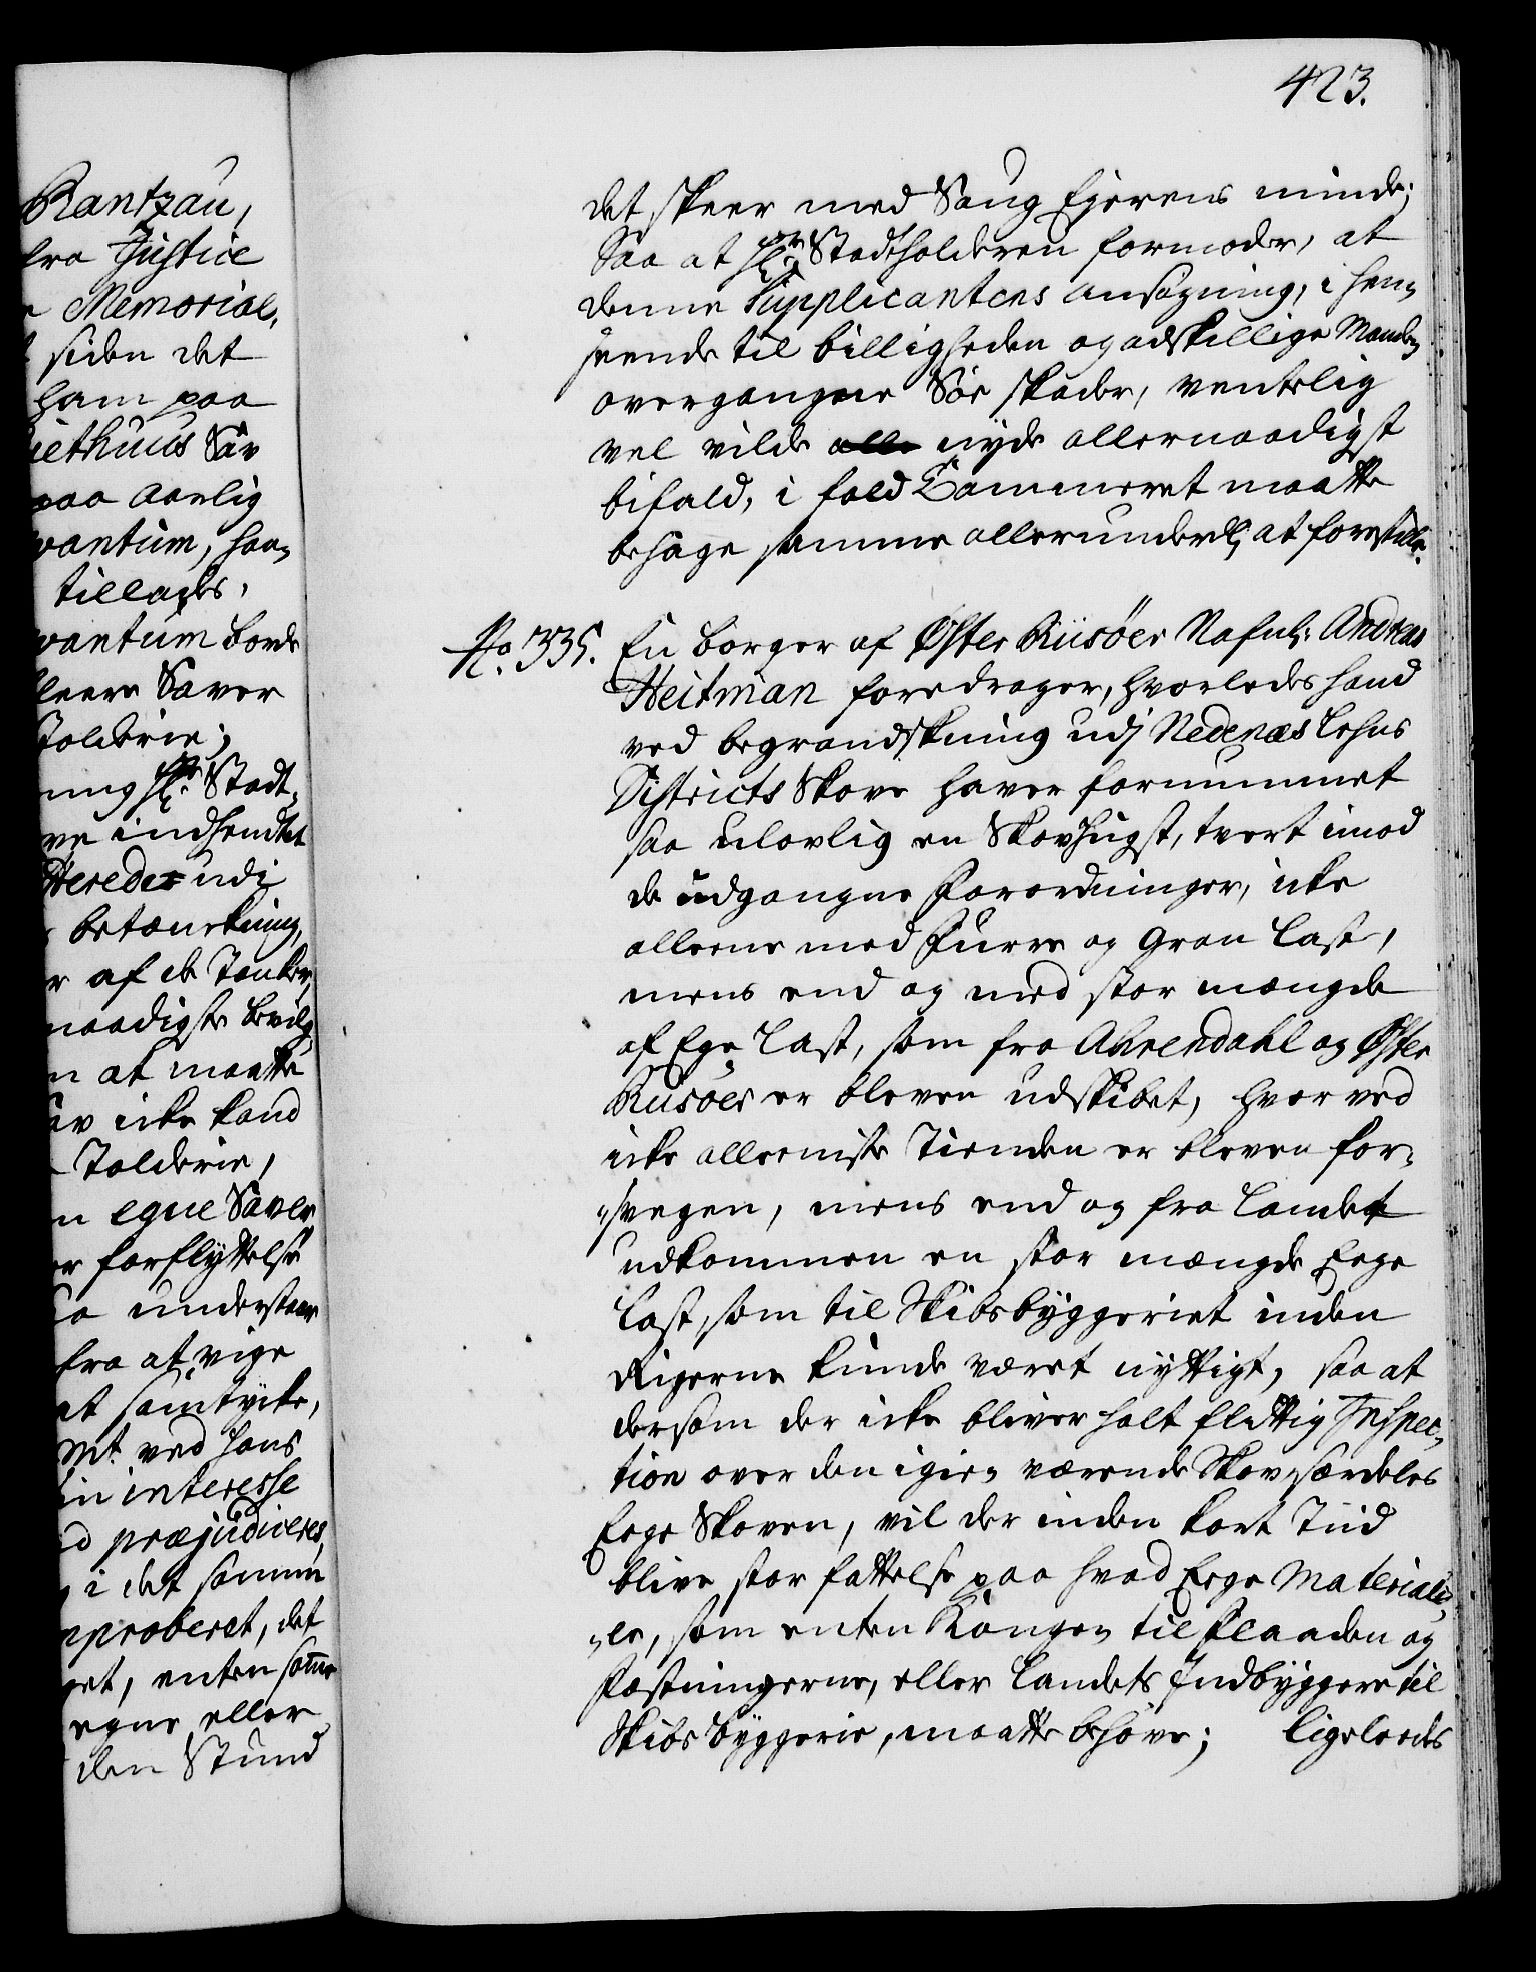 423.
Rantzau,
fra Justice
Memorial,
siden det
ham paa
Sav
paa aarlig
qvantum, haa-
tillagds,
qvantum borde
fleere Saver
Tolderie;
ning Hr. Stadt-
indhendtet
Heredet udi
betænckning,
af de Tancker,
naadigste bevilg-
at maatte
icke kand
Tolderie,
egne Saver
forflyttelse
understaar
fra at vige
at samtycke,
Mt. ved hans
interesse
præjudiceres,
i det samme
approberet, det
enten samme
egne eller
den Stund
det skeer med Saug Ejerens minde;
Saa at Hr. Stadtholderen formoder, at
denne Supplicantens ansøgning, i hen-
seende til billigheden og adskillige Manden
overgangne Søe skader, ventelig
vel vilde alle nyde allernaadigst
bifald, i fald Cammeret maatte
behage samme allerunderd. at forestille.
No. 335. En borger af Øster Riisøer Nafnl: Andreas
Heitman foredrager, hvorledes hand
ved begrandskning udj Nedenæs Lehns
Districts Skove haver fornummet
saa ulovlig en Skovhugst, tvert imod
de udgangne Forordninger, icke
alleene med Furre og Gran Last,
mens end og med stor mængde
af Ege Last, som fra Ahrendahl og Øster
Riisöer er bleven udskibet, hvor ved
icke alleeniste Tienden er bleven for-
svegen, mens end og fra Landet
udkommen en stor mængde Eege
Last, som til Skibsbyggeriet inden
Rigerne kunde været nyttigt, saa at
dersom der icke bliver holt flittig Inspec-
tion over den igien værende Skov, særdeles
Eege Skoven, vil der inden kort Tiid
blive stor fattelse paa hvad Eege Materiali-
er, som enten Kongen til Flaaden og
Fæstningerne, eller Landets Indbyggere til
Skibs byggerie, maatte behøve; Ligeleedes